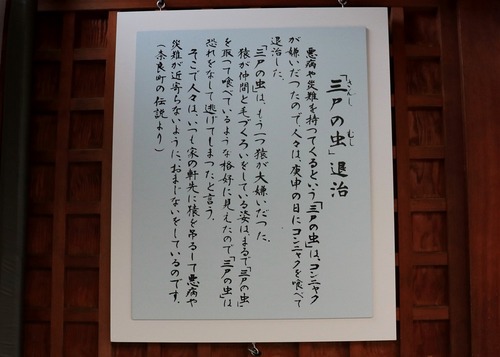 さんし むし
「三尸の虫」退治
悪病や災難を持ってくるという「三尸の虫」は、コンニャク
が嫌いだったので、人々は、庚申の日にコンニャクを喰べて
退治した。
「三尸の虫」は、もう一つ猿が大嫌いだった。
猿が仲間と毛づくろいをしている姿は、まるで「三尸の虫」
を取って喰べているような格好に見えたので「三尸の虫」は
恐れをなして逃げてしまったと言う。
そこで人々は、いつも家の軒先に猿を吊るして悪病や
災難が近寄らないように、おまじないをしているのです。
（奈良町の伝説より）